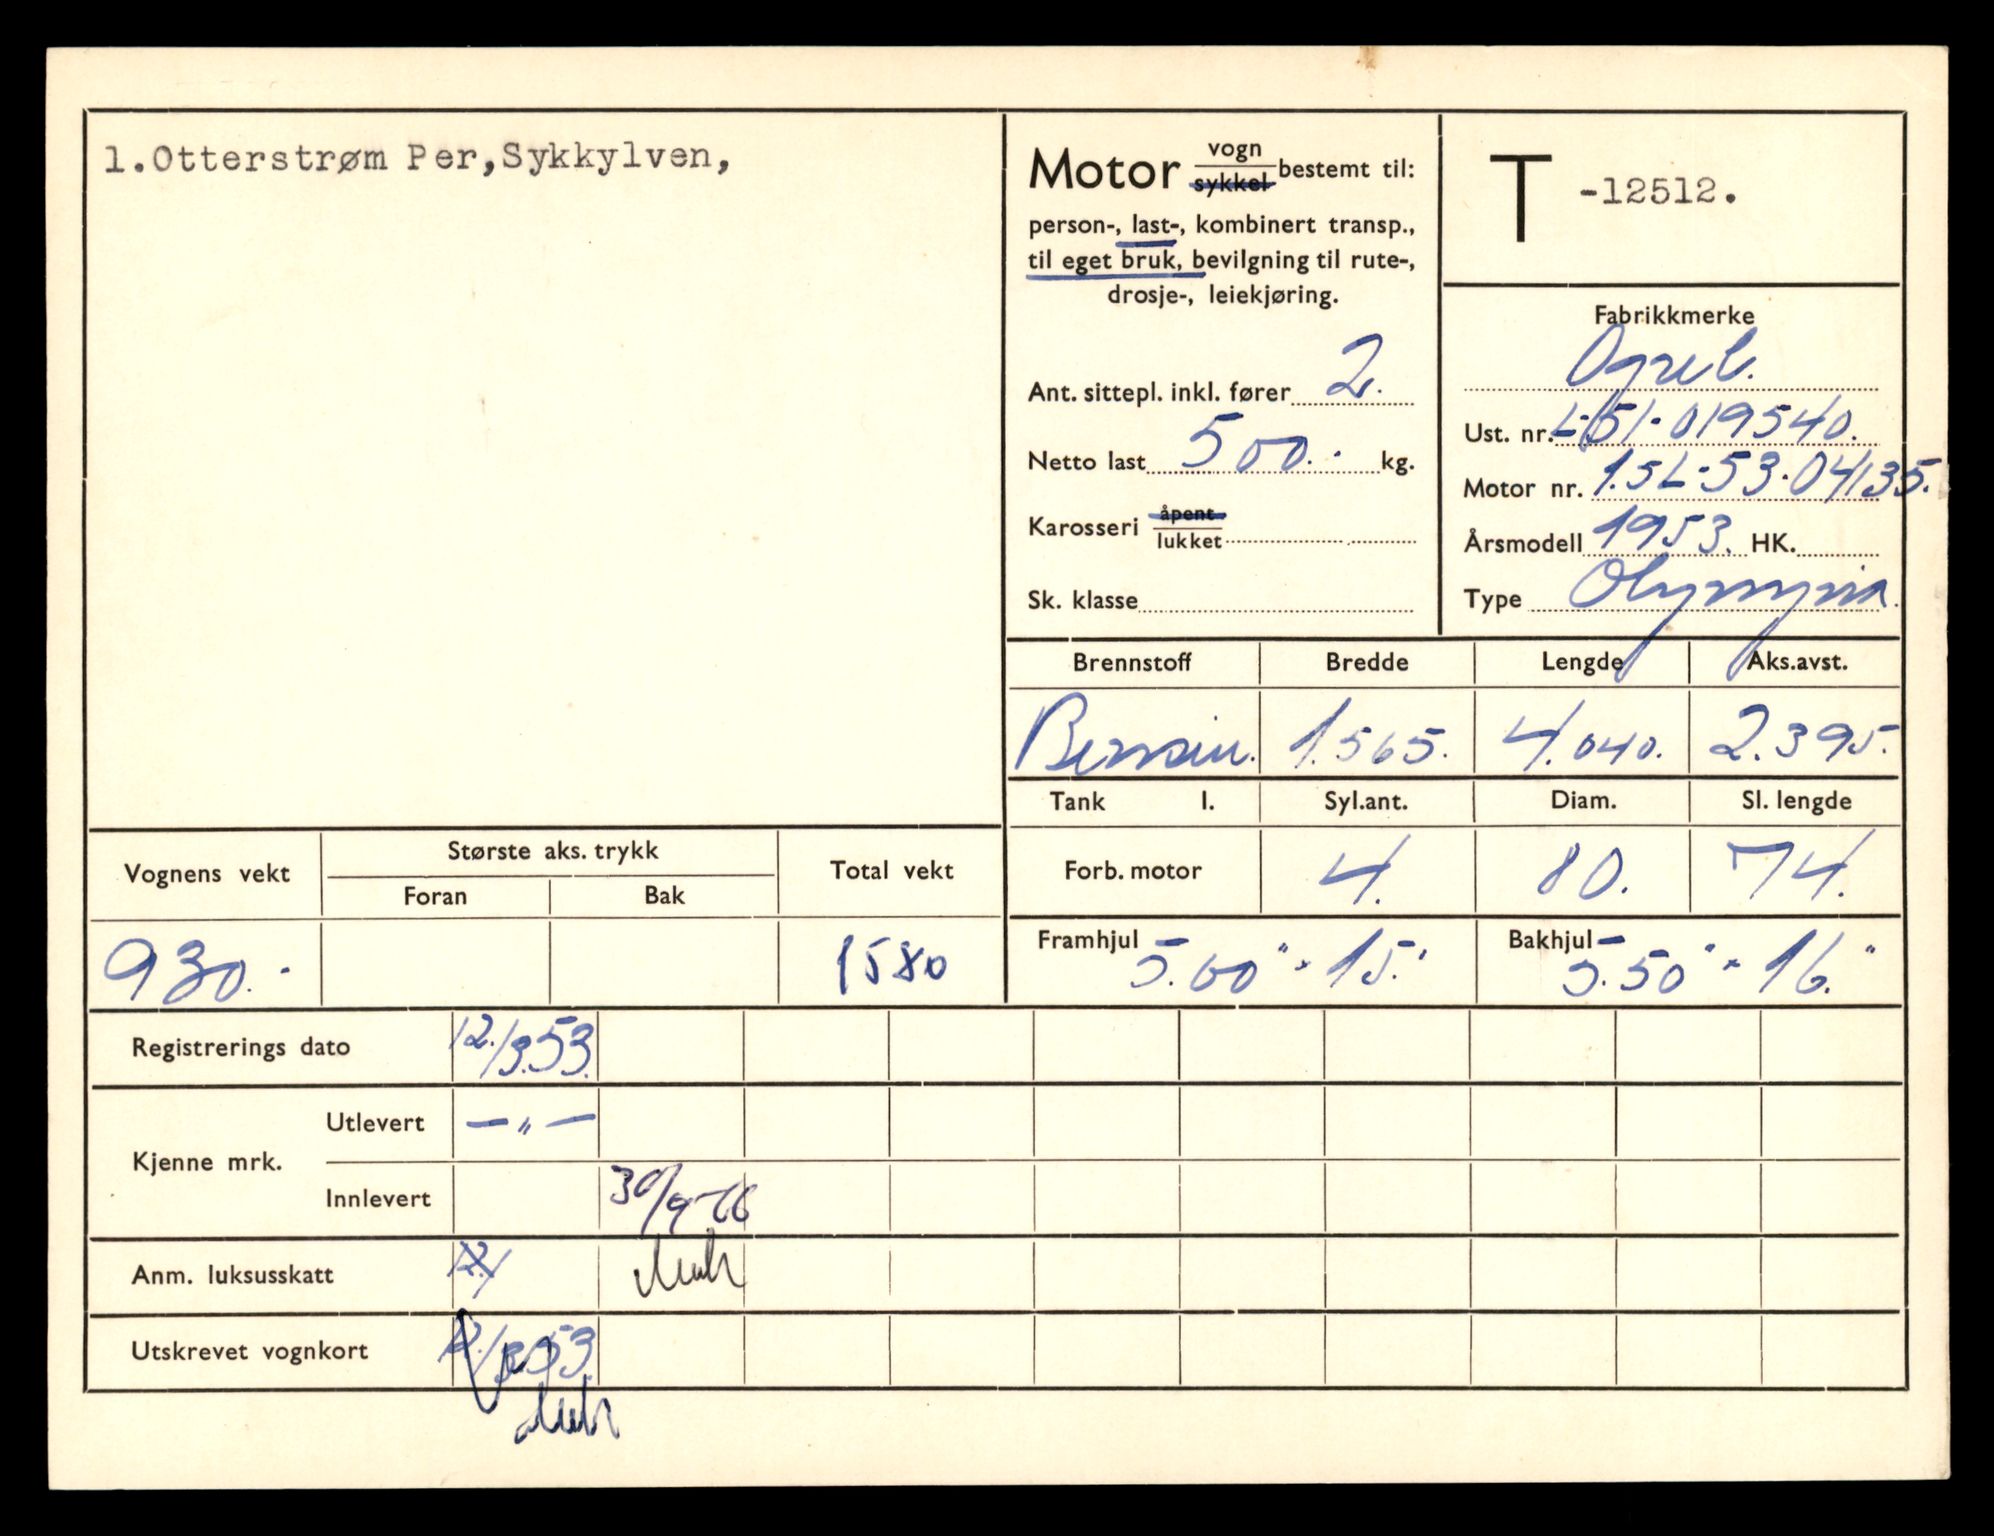 1.Otterstrøm Per,Sykkylven,
Motor vogn sykkel bestemt til:
person-, last-, kombinert transp.,
til eget bruk, bevilgning til rute-,
drosje-, leiekjøring.
Ant. sittepl. inkl. fører 2.
Netto last 500.- kg.
Karosseri åpent lukket
Sk. klasse
T -12512.
Fabrikkmerke
Opel.
Ust. nr. L-51-019540.
Motor nr. 1.5L-53-04135.
Årsmodell 1953. HK.
Type Olympia.
Brennstoff Bredde Lengde Aks.avst.
Bensin. 1.565. 4.040. 2.395.
Tank l. Syl.ant. Diam. Sl. lengde
Forb. motor 4. 80. 74.
Framhjul 5.00" × 15." Bakhjul 5.50" × 16."
Vognens vekt Største aks. trykk Total vekt
Foran Bak
930.- 1580
Registrerings dato 12./3.53.
Kjenne mrk.
Utlevert — " —
Innlevert 30/9-66
Anm. luksusskatt 12./
Utskrevet vognkort 12./3.53.